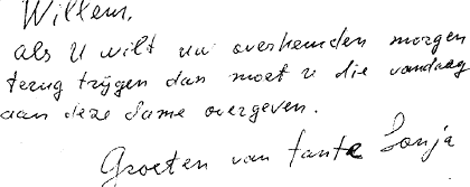 Willem,
als U wilt uw overhemden morgen
terug krijgen dan moet u die vandaag
aan deze dame overgeven.
Groeten van tante Sonja